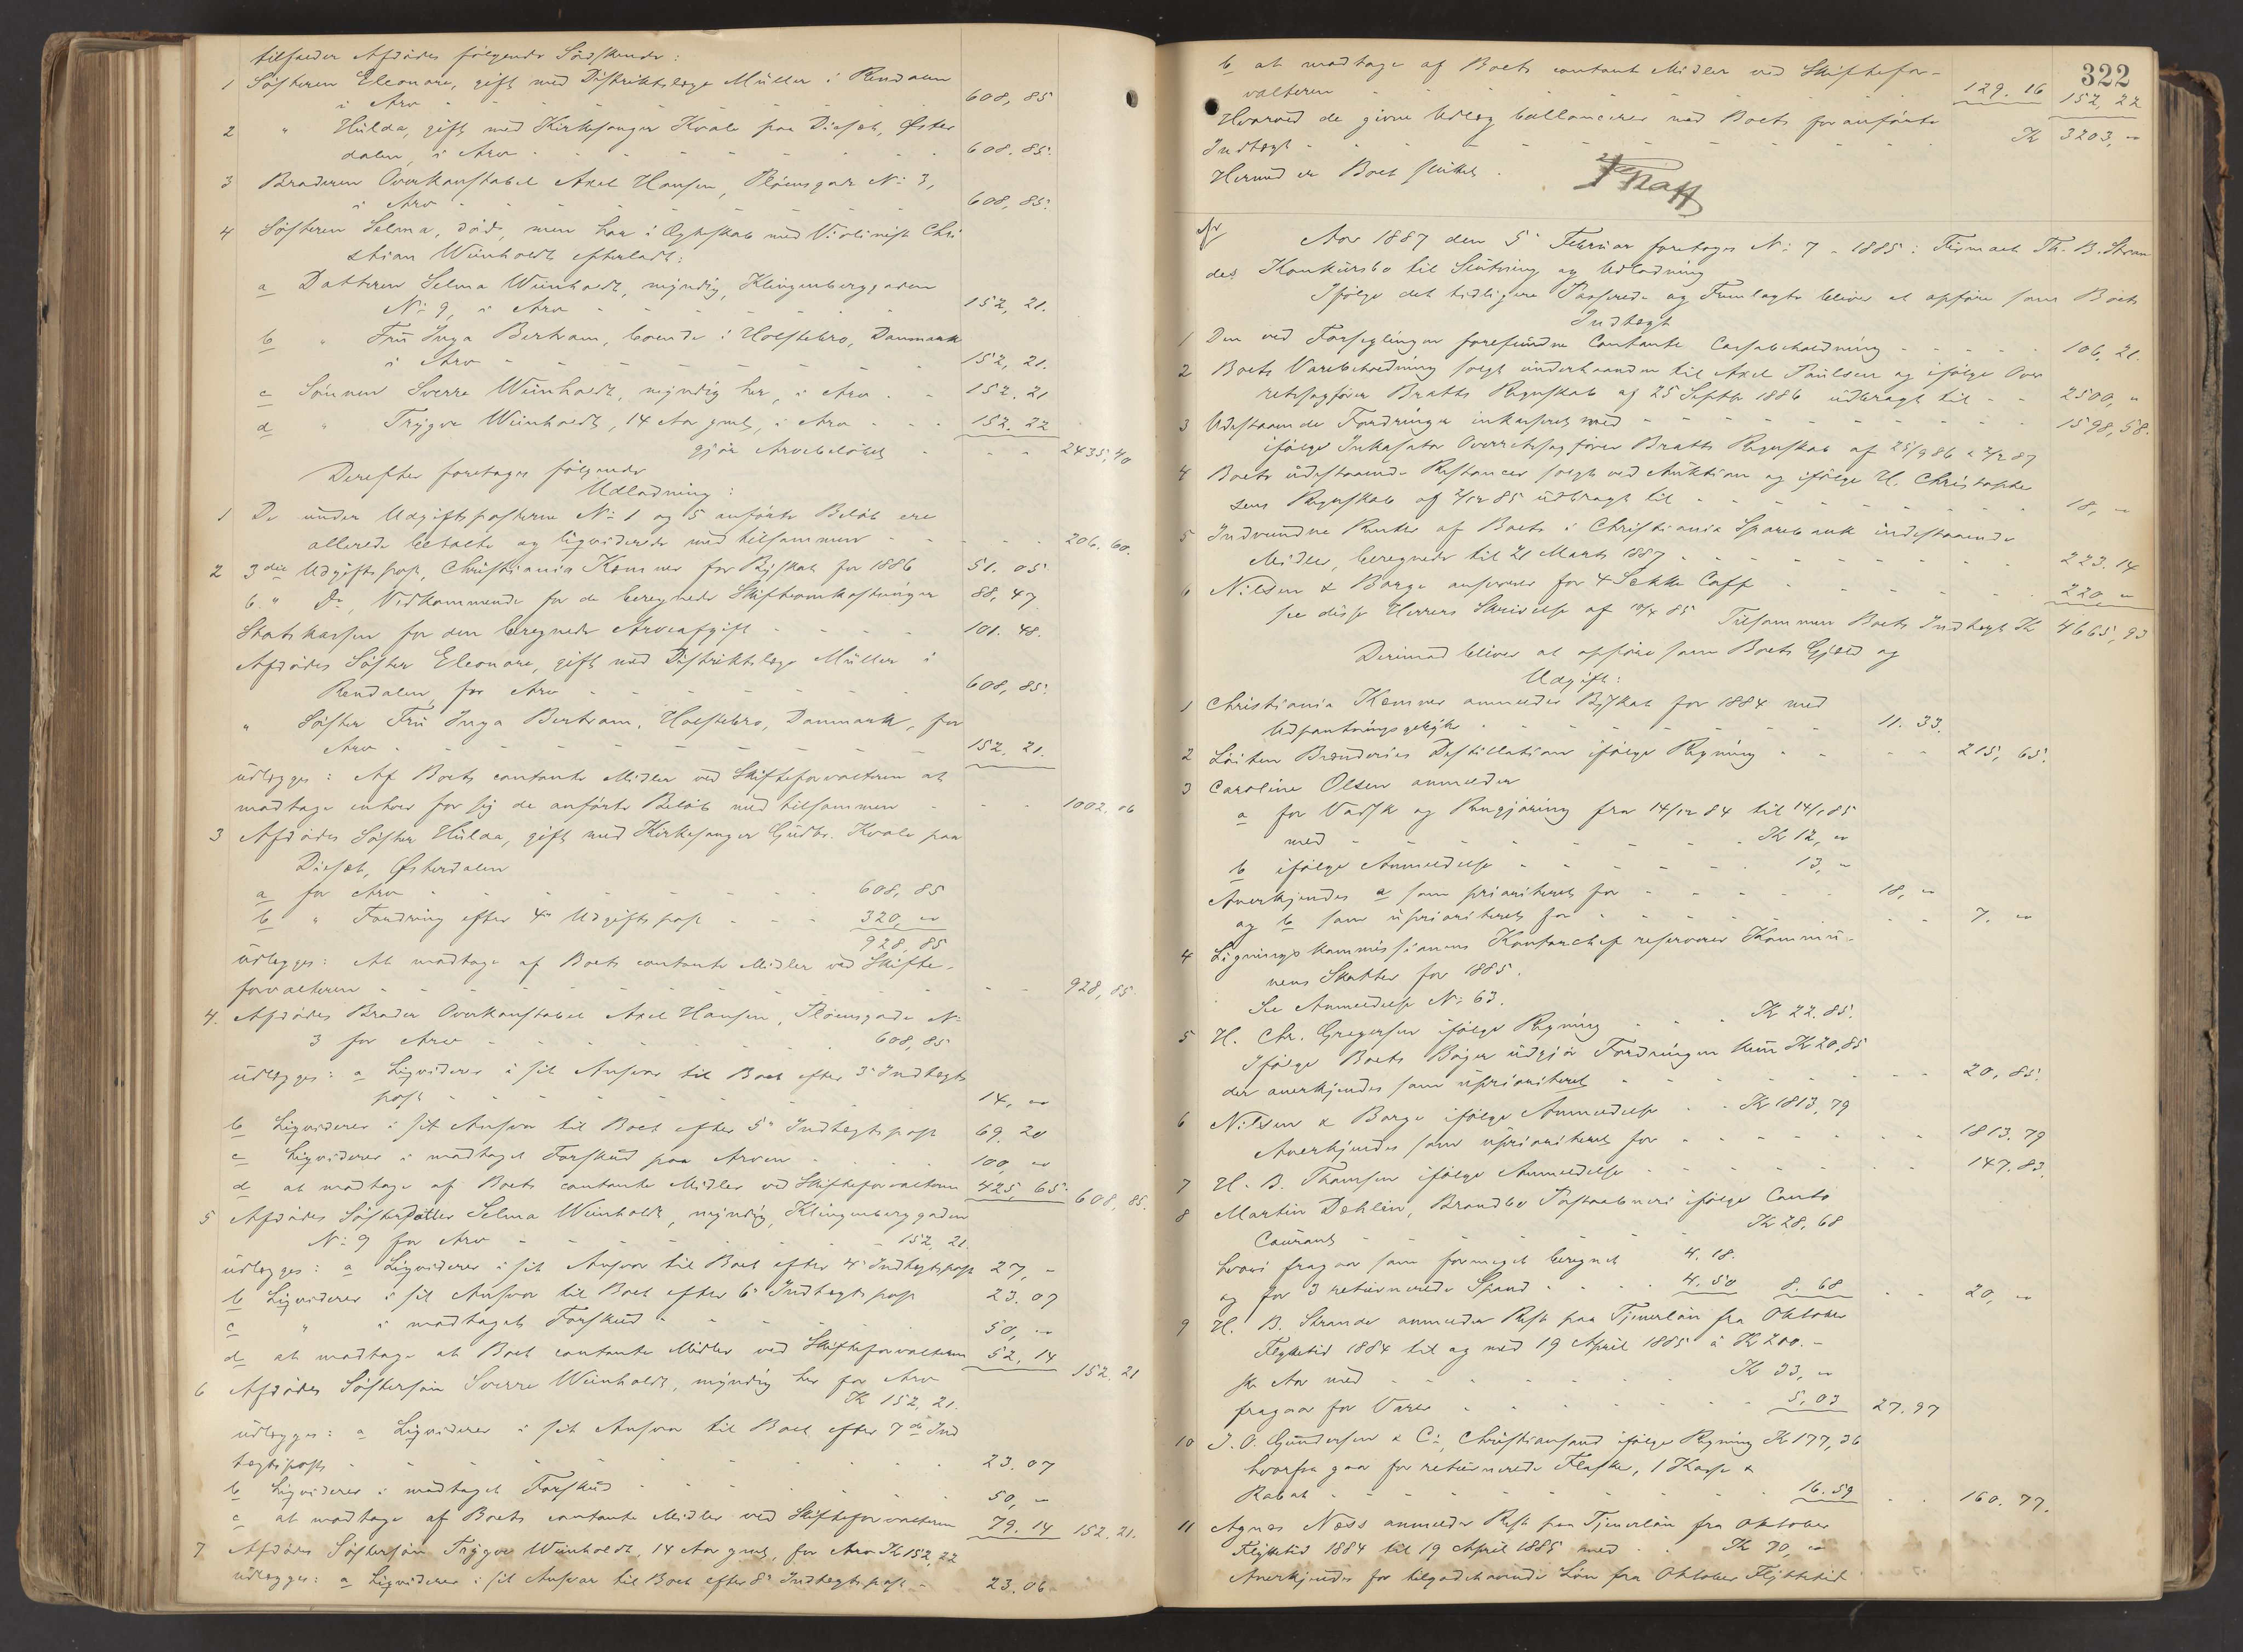 tilfalder Afdødes følgende Sødskende:
1 Søsteren Eleonore, gift med Distriktslæge Müller i Rendalen
i Arv - - - 608, 85
2 " Hulda, gift med Kirkesanger Kvale paa Diesæt, Øster
dalen, i Arv - - - 608. 85.
3 Broderen Overkonstabel Axel Hansen, Pløensgade No 3,
i Arv - - - 608, 85.
4 Søsteren Selma, død, men har i Ægteskab med Violinist Chri
stian Weinholdt efterladt:
a Datteren Selma Weinholdt, myndig, Klingenberggaden
No 9, i Arv - - - 152, 21.
b " Fru Inga Bertram, boende i Holstebro, Danmark
i Arv - - - 152, 21.
c Sønnen Sverre Weinholdt, myndig her, i Arv - - 152. 21
d " Trygve Weinholdt, 14 Aar gml, i Arv - - - 152. 22
gjør Arvebeløbet - - - 2435, 40
Derefter foretages følgende
Udlodning:
1 De under Udgiftsposterne No 1 og 5 anførte Beløb ere
allerede betalte og ligviderede med tilsammen - - - 206. 60.
2 3die Udgiftspost, Christiania Kemner for Byskat for 1886 51. 05.
6. " Do, Vedkommende for de beregnede Skifteomkostninger 88, 47
Statskassen for den beregnede Arveafgift - - - 101. 48.
Afdødes Søster Eleonore, gift med Distriktslæge Müller i
Rendalen, for Arv - - - 608, 85.
" Søster Fru Inga Bertram, Holstebro, Danmark, for
Arv - - - 152. 21.
udlægges: Af Boets contante Midler ved Skifteforvalteren at
modtage enhver for sig de anførte Beløb med tilsammen - - - 1002, 06
3 Afdødes Søster Hulda, gift med Kirkesanger Gudbr. Kvale paa
Diesæt, Østerdalen
a for Arv - - - 608, 85
b " Fordring efter 4de Udgiftspost - - - 320, "
928, 85
udlægges: At modtage af Boets contante Midler ved Skifte-
forvalteren - - - 928, 85.
4. Afdødes Broder Overkonstabel Axel Hansen, Pløensgade No
3 for Arv - - - 608, 85
udlægges: a Ligviderer i sit Ansvar til Boet efter 3' Indtægts
post - - - 14, "
b Ligviderer i sit Ansvar til Boet efter 5" Indtægtspost 69. 20
c Ligviderer i modtaget Forskud paa Arven - - - 100, "
d at modtage af Boets contante Midler ved Skifteforvalteren 425, 65. 608, 85.
5 Afdødes Søsterdatter Selma Weinholdt, myndig, Klingenberggaden
No 9 for Arv - - - 152, 21.
udlægges: a Ligviderer i sit Ansvar til Boet efter 4' Indtægtspost 27, -
b Ligviderer i sit Ansvar til Boet efter 6' Indtægtspost 23. 07
c " i modtaget Forskud - - - 50, "
d at modtage at Boet contante Midler ved Skifteforvalteren 52, 14 152. 21
6 Afdødes Søstersøn Sverre Weinholdt, myndig her for Arv
Kr 152, 21.
udlægges: a Ligviderer i sit Ansvar til Boet efter 7de Ind
tægtspost - - - 23. 07
b Ligviderer i modtaget Forskud - - - 50, "
c at modtage af Boets contante Midler ved Skifteforvalteren 79. 14 152, 21.
7 Afdødes Søstersøn Trygve Weinholdt, 14 Aar gml, for Arv Kr 152, 22
udlægges: a Ligviderer i sit Ansvar til Boet efter 8' Indtægtspost - 23. 06
322
b at modtage af Boets contante Midler ved Skiftefor-
valteren - - - 129. 16 152, 22
Hvorved de givne Udlæg ballancerer med Boets foranførte
Indtægt - - - Kr 3203, "
Hermed er Boet sluttet.
Aar 1887 den 5' Februar foretoges No 7 - 1885: Firmaet Th. B. Stran
des Konkursbo til Slutning og Udlodning
Ifølge det tidligere Passerede og Fremlagte bliver at opføre som Boets
Indtægt
1 Den ved Forseglingen forefundne Contante Cassabeholdning - - - 106, 21.
2 Boets Varebeholdning solgt underhaanden til Axel Paulsen og ifølge Over
retssagfører Bratts Regnskab af 25 Septbr 1886 udbragt til - - 2500, "
3 Udestaaende Fordringer inkasseret med - - - 1598, 58.
ifølge Inkasator Overretssagfører Bratts Regnskab af 25/9 86 & 2/2 87
4 Boets udestaaende Restancer solgt ved Auktion og ifølge H. Christophe
sens Regnskab af 2/12 85 udbragt til - - - 18, "
5 Indvundne Renter af Boets i Christiania Sparebank indestaaende
Midler, beregnede til 21 Marts 1887 - - - 223. 14
6 Nilsen & Borge ansvarer for 4 Sække Caffe - - - 220 "
see disse Herrers Skrivelse af 10/4 85 Tilsammen Boets Indtægt Kr 4665, 93
Derimod bliver at opføre som Boets Gjæld og
Udgift:
1 Christiania Kemner anmelder Byskat for 1884 med
Udpantningsgebyhr - - - 11. 33.
2 Løiten Brænderies Destillation ifølge Regning - - - 215, 65.
3 Caroline Olsen anmelder
a for Vadsk og Rengjøring fra 14/12 84 til 14/1 85
med - - - Kr 12, "
b ifølge Anmeldelse - - - 13, "
Anerkjendes a som prioriteret for - - - 18, "
og b som uprioriteret for - - - 7, "
4 Ligningskommissionens Kontorchef reserverer Kommu-
nens Skatter for 1885.
See Anmeldelse No 63.
5 H. Chr. Gregersen ifølge Regning - - - Kr 22. 85.
Ifølge Boets Bøger udgjør Fordringen kun Kr 20,85
der anerkjendes som uprioriteret - - - 20, 85.
6 Nilsen & Borge ifølge Anmeldelse - - Kr 1813, 79
Anerkjendes som uprioriteret for - - - 1813. 79
7 H. B. Thomsen ifølge Anmeldelse - - - 147. 83.
8 Martin Dehlin, Brandbo Postaabneri ifølge Conto
Courant - - - Kr 28, 68
hvori fragaar som formeget beregnet 4. 18.
og for 3 returnerede Spand - - - 4. 50 8. 68 - - 20, "
9 H. B. Strande anmelder Rest paa Tjenerløn fra Oktober
Flyttetid 1884 til og med 19 April 1885 à Kr 200. -
pr Aar med - - - Kr 33, "
fragaar for Varer - - - 5, 03 27. 97
10 J. O. Gundersen & Co, Christiansund ifølge Regning Kr 177, 36
hvorfra gaar for returnerede Flasker, 1 Kasse &
Rabat - - - 16. 59 - - 160. 77.
11 Agnes Næss anmelder Rest paa Tjenerløn fra Oktober
Flyttetid 1884 til 19 April 1885 med - - Kr 70, "
Anerkjendes for tilgodehavende Løn fra Oktober Flyttetid